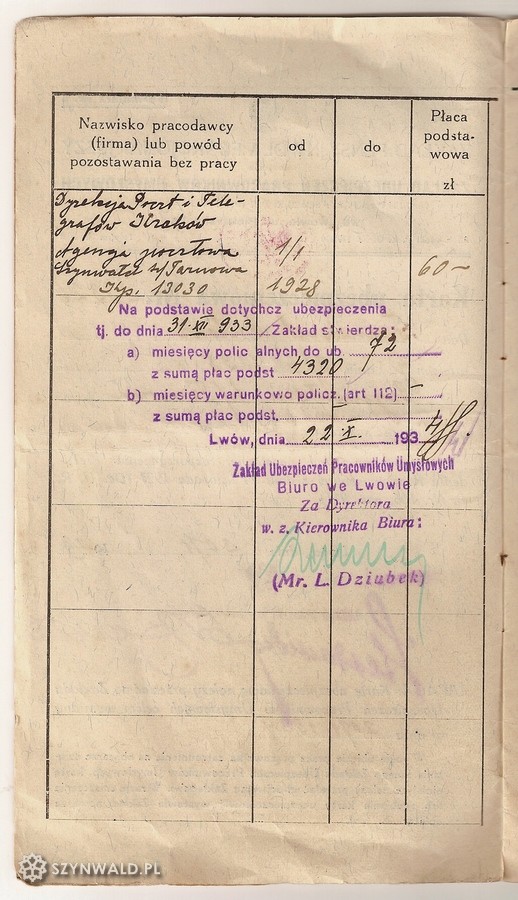 Nazwisko pracodawcy
(firma) lub powód
pozostawania bez pracy
od
do
Płaca
podsta-
wowa
zł
Dyrekcja Poczt i Tele-
grafów Kraków
Agencja pocztowa
Szynwałd k/Tarnowa
Kp. 13030
1/I
1928
60 –
Na podstawie dotychcz ubezpieczenia
tj. do dnia 31. XII 933 Zakład stwierdza:
a) miesięcy policzalnych do ub. 72
z sumą płac podst 4320
b) miesięcy warunkowo policz. (art 112) –
z sumą płac podst. –
Lwów, dnia 22. X. 1934
Zakład Ubezpieczeń Pracowników Umysłowych
Biuro we Lwowie
Za Dyrektora
w. z. Kierownika Biura:
(Mr. L. Dziubek)
SZYNWALD.PL